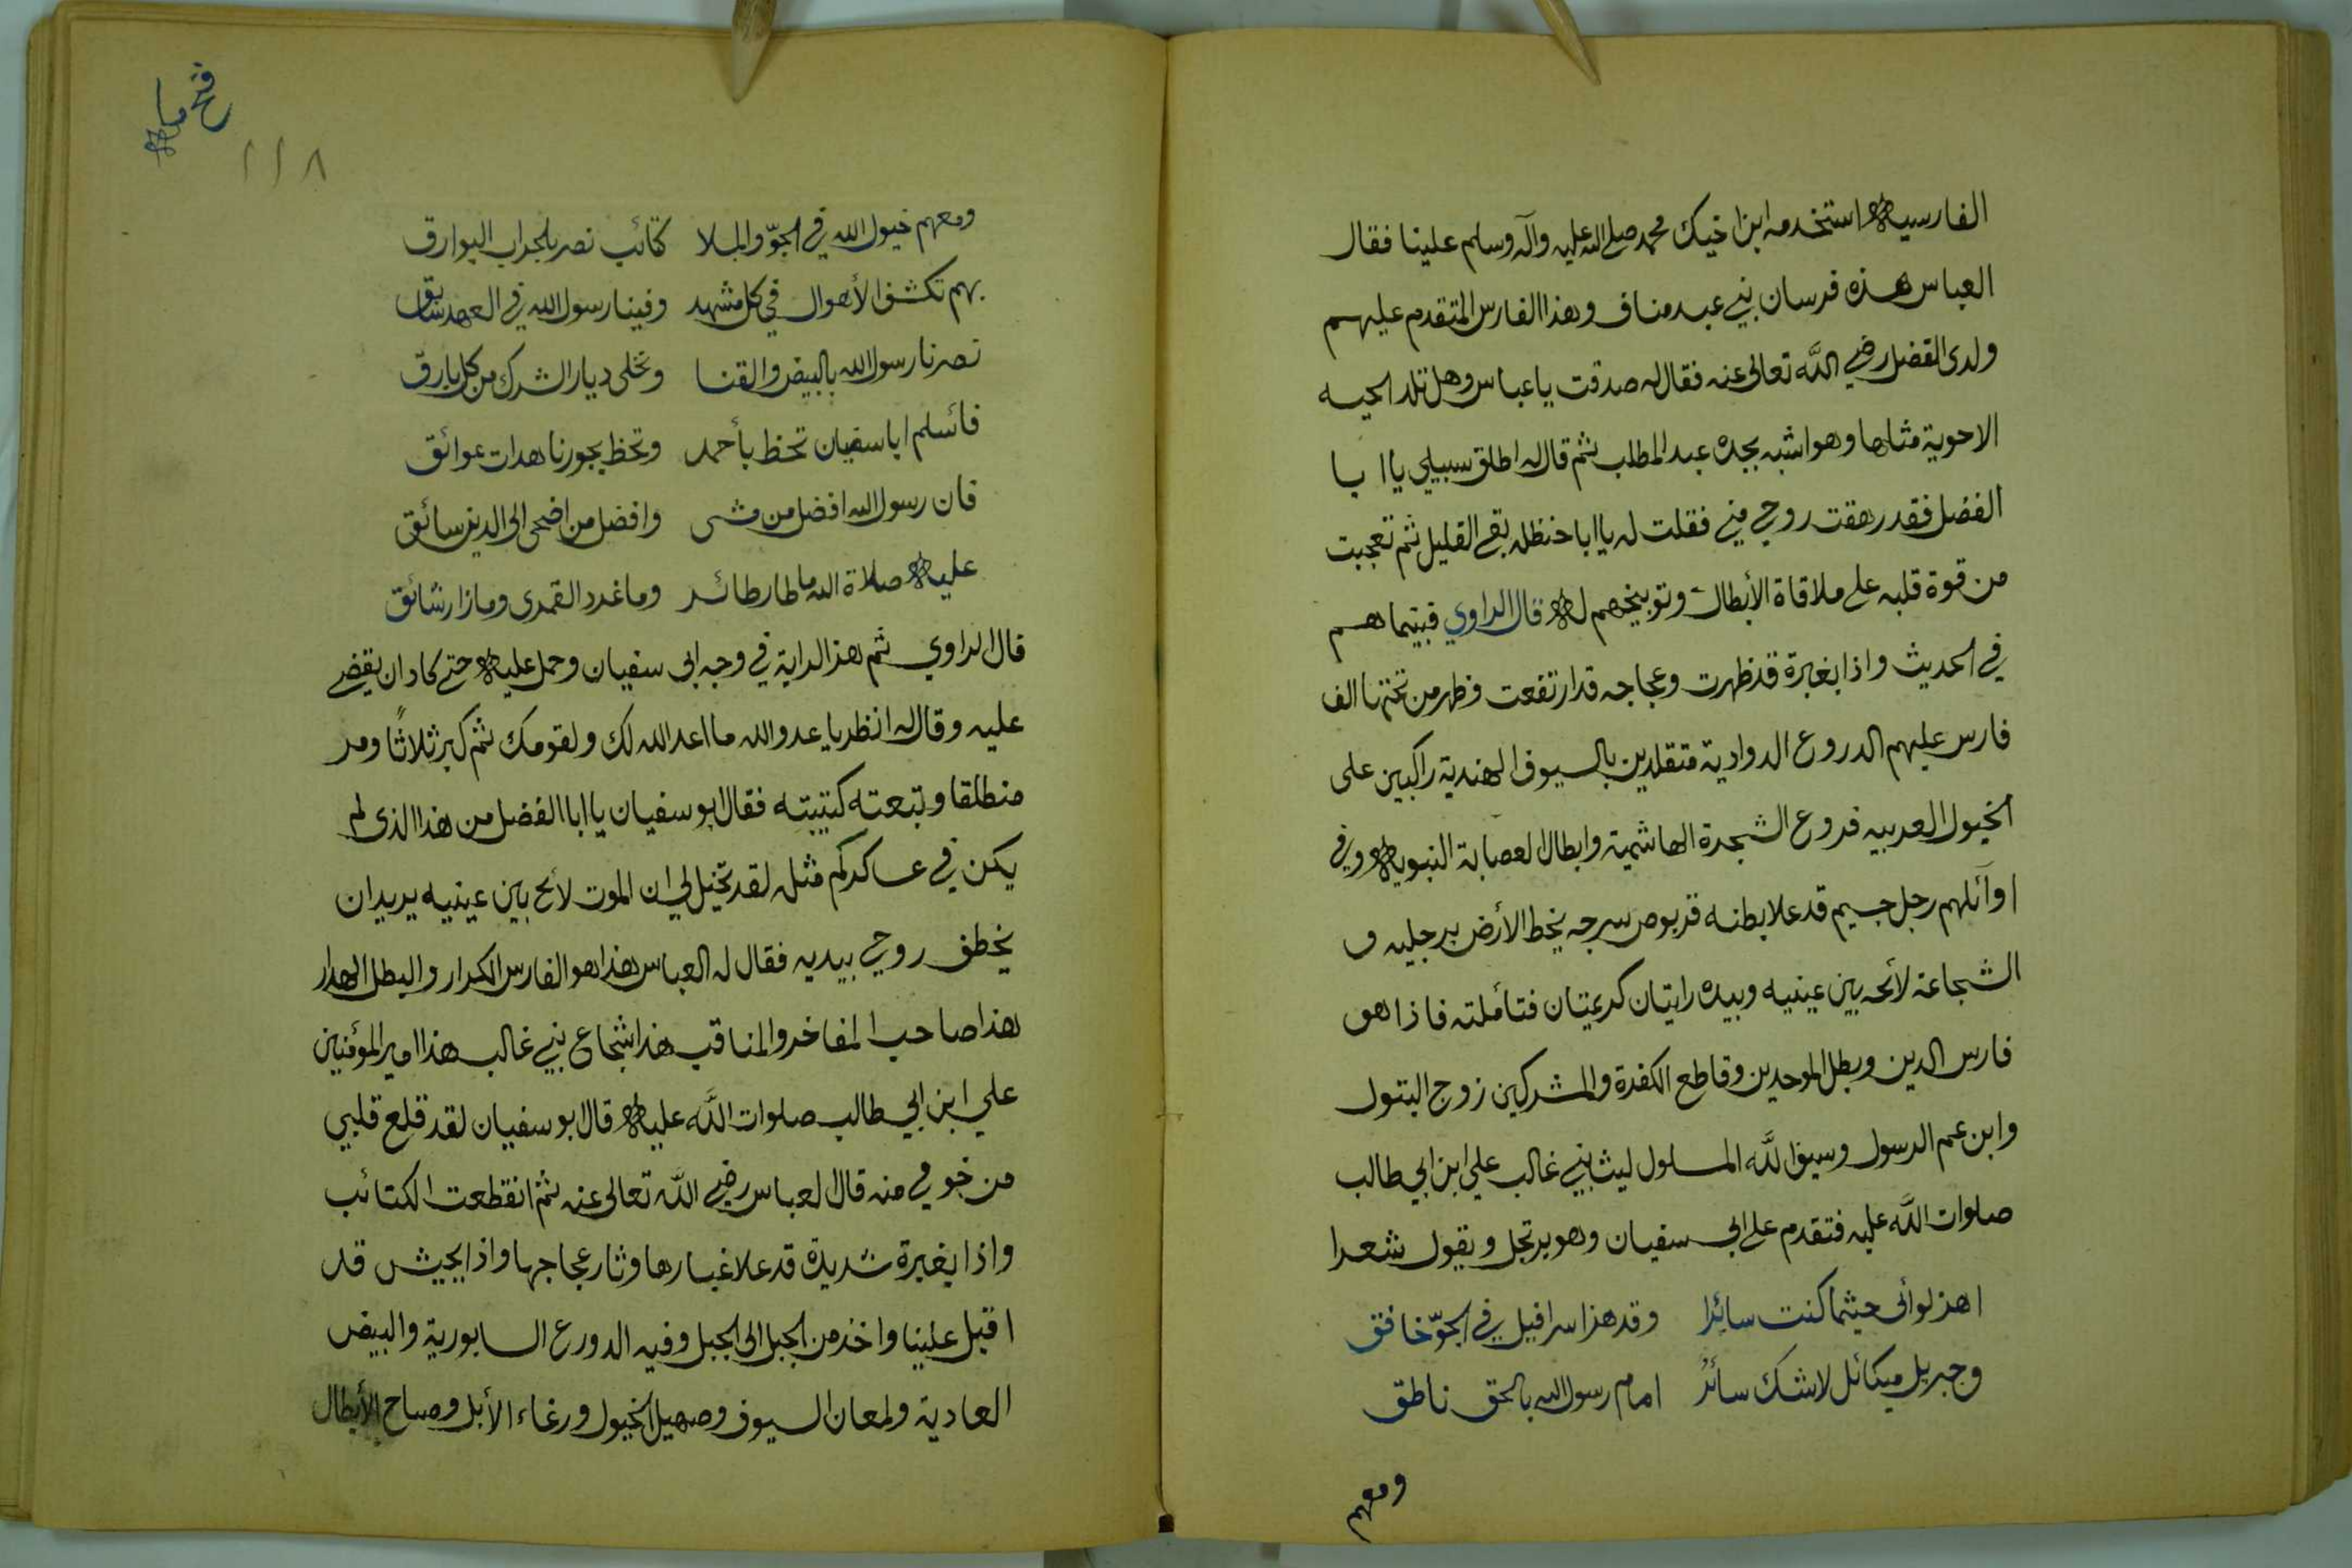 الفارسية استخدمه ابن اخيك محمد صلى الله عليه وآله وسلم علينا فقال
العباس هذه فرسان بني عبد مناف وهذا الفارس المتقدم عليهم
ولدى الفضل رضي الله تعالى عنه فقال له صدقت يا عباس وهل تلد الحيه
الاحوية مثلها وهو اشبه بجده عبد المطلب ثم قال له اطلق سبيلي يا ا با
الفضل فقد رهقت روحي مني فقلت له يا ابا حنظله بقي القليل ثم تعجبت
من قوة قلبه على ملاقاة الأبطال وتوبيخهم له قال الراوي فبينما هم
في الحديث واذا بغبرة قد ظهرت وعجاجه قد ارتفعت وظهر من تحتها الف
فارس عليهم الدروع الدوادية متقلدين بالسيوف الهندية راكبين على
الخيول العربيه فروع الشجرة الهاشمية وابطال العصابة النبوية وفي
اوآئلهم رجل جسيم قد علا بطنه قربوص سرجه يخط الأرض برجليه و
الشجاعة لائحه بين عينيه وبيده رايتان كريمتان فتأملته فاذا هو
فارس الدين وبطل الموحدين وقاطع الكفرة والمشركين زوج البتول
وابن عم الرسول وسيف الله المسلول ليث بني غالب علي ابن ابي طالب
صلوات الله عليه فتقدم على ابي سفيان وهو يرتجل ويقول شعرا
اهز لوائى حيثما كنت سائرا وقد هز اسرافيل في الجوّ خافق
وجبريل ميكائل لا شك سائرٌ امام رسول الله بالحق ناطق
ومعهم
فتح مكة
١١٨
ومعهم خيول الله في الجوّ والملا كتائب نصر بلجراب البوارق
بهم تكشف الأهوال في كل مشهد وفينا رسول الله في العهد سابق
نصرنا رسول الله بالبيض والقنا وتخلى ديار الشرك من كل بارق
فأسلم ابا سفيان تحظ بأحمد وتحظ بحور ناهدات عوائق
فان رسول الله افضل من مشى وافضل من اضحى الى الدين سائق
عليه صلاة الله ما طار طائر وما غرد القمرى وما زار شائق
قال الراوي ثم هز الراية في وجه ابى سفيان وحمل عليه حتى كاد ان يقضي
عليه وقال له انظر يا عدو الله ما اعد الله لك ولقومك ثم كبر ثلاثاً ومر
منطلقا وتبعته كتيبته فقال ابو سفيان يا ابا الفضل من هذا الذى لم
يكن في عساكركم مثله لقد تخيل لي ان الموت لائح بين عينيه يريد ان
يخطف روحي بيديه فقال له العباس هذا هو الفارس الكرار والبطل الهدار
هذا صاحب المفاخر والمناقب هذا شجاع بني غالب هذا امير المؤمنين
علي ابن ابي طالب صلوات الله عليه قال ابو سفيان لقد قلع قلبي
من خوفي منه قال العباس رضي الله تعالى عنه ثم انقطعت الكتائب
واذا بغبرة شديدة قد علا غبارها وثار عجاجها واذا بجيش قد
اقبل علينا واخذ من الجبل الى الجبل وفيه الدورع السابورية والبيض
العادية ولمعان السيوف وصهيل الخيول ورغاء الأبل وصياح الأبطال